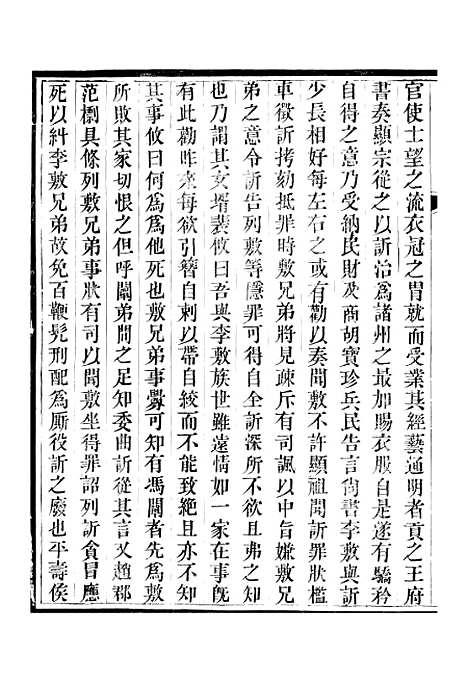 官使士望之流衣冠之胄就而受業其經藝通明者貢之王府
書奏顯宗從之以訢治爲諸州之最加賜衣服自是遂有驕矜
自得之意乃受納民財及商胡寶珍兵民告言尚書李敷與訢
少長相好每左右之或有勸以奏聞敷不許顯祖聞訢罪狀檻
車徵訢拷劾抵罪時敷兄弟將見疎斥有司諷以中旨嫌敷兄
弟之意令訢告列敷等隱罪可得自全訢深所不欲且弗之知
也乃謂其女壻裴攸曰吾與李敷族世雖遠情如一家在事旣
有此勸昨來每欲引簪自刺以帶自絞而不能致絶且亦不知
其事攸曰何爲爲他死也敷兄弟事舋可知有馮闡者先爲敷
所敗其家切恨之但呼闡弟問之足知委曲訢從其言又趙郡
范檦具條列敷兄弟事狀有司以聞敷坐得罪詔列訢貪冒應
死以糾李敷兄弟故免百鞭髡刑配爲厮役訢之廢也平壽侯